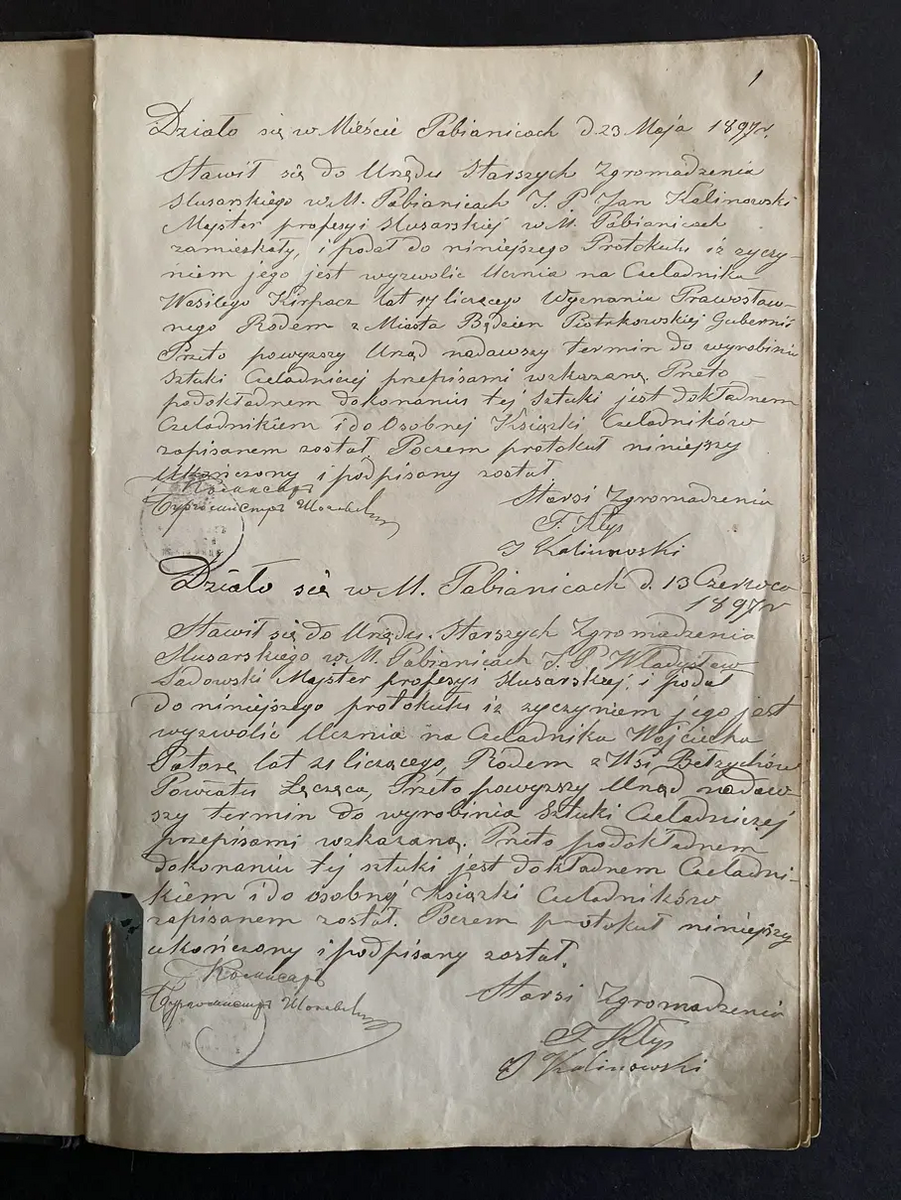 1
Działo się w Mieście Pabianicach d. 23 Maja 1897 r.
Stawił się do Urzędu Starszych Zgromadzenia
Slusarskiego w M. Pabianicach J. P. Jan Kalinowski
Majster profesyi slusarskiej w M. Pabianicach
zamieszkały, i podał do niniejszego Protokułu iż życzy-
niem jego jest wyzwolić Ucznia na Czeladnika
Wasilego Kirpacz lat 17 liczącego Wyznania Prawosław-
nego Rodem z Miasta Będzien Piotrkowskiej Gubernii
Przeto powyższy Urząd nadawszy termin do wyrobiniu
Sztuki Czeladniczej przepisami wskazaną. Przeto
podokładnem dokonaniu tej Sztuki jest dokładnem
Czeladnikiem i do Osobnej Książki Czeladników
zapisanem został. Poczem protokuł niniejszy
ukończony i podpisany został
Комисаръ
Бургомистръ
Starsi Zgromadzenia
F. Kłys
J Kalinowski
Działo się w M. Pabianicach d. 13 Czerwca
1897 r
Stawił się do Urzędu Starszych Zgromadzenia
Slusarskiego w M. Pabianicach J. P. Władysław
Sadowski Majster profesyi slusarskiej, i podał
do niniejszego protokułu iż życzyniem jego jest
wyzwolić Ucznia na Czeladnika Wojciecha
lat 21 liczącego, Rodem z Wsi Bełzychów
Powiatu Łęczęca, Przeto powyższy Urząd nadaw-
szy termin do wyrobinia Sztuki Czeladniczej
przepisami wskazaną. Przeto podokładnem
dokonaniu tej sztuki jest dokładnem Czeladni-
kiem i do osobnej Książki Czeladników
zapisanem został. Poczem protokuł niniejszy
ukończony i podpisany został.
Комисаръ
Бургомистръ
Starsi Zgromadzenia
F. Kłys
J Kalinowski